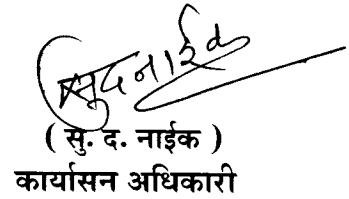 सुदनाईक
( सु. द. नाईक )
कार्यासन अधिकारी